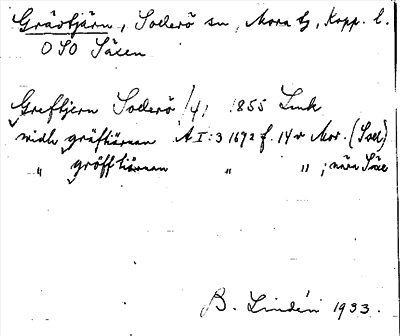 Grävtjärn, Sollerö sn, Mora tg, Kopp. l.
OSO Säsen
Greftjern Sollerö 1/41 1855 Link
vidh gräftiärnan A I:3 1692 f. 14 v Mor. (Soll)
" gröfftiärnan " " ; nära
B. Lindén 1933.